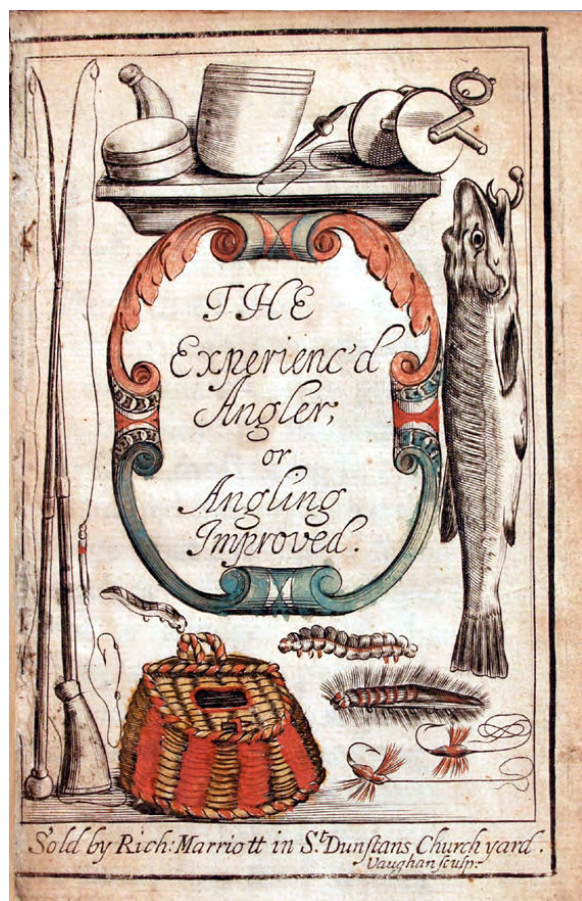 THE
Experienc'd
Angler;
or
Angling
Improved.
Sold by Rich: Marriott in S.t Dunstans Church yard.
Vaughan sculp: